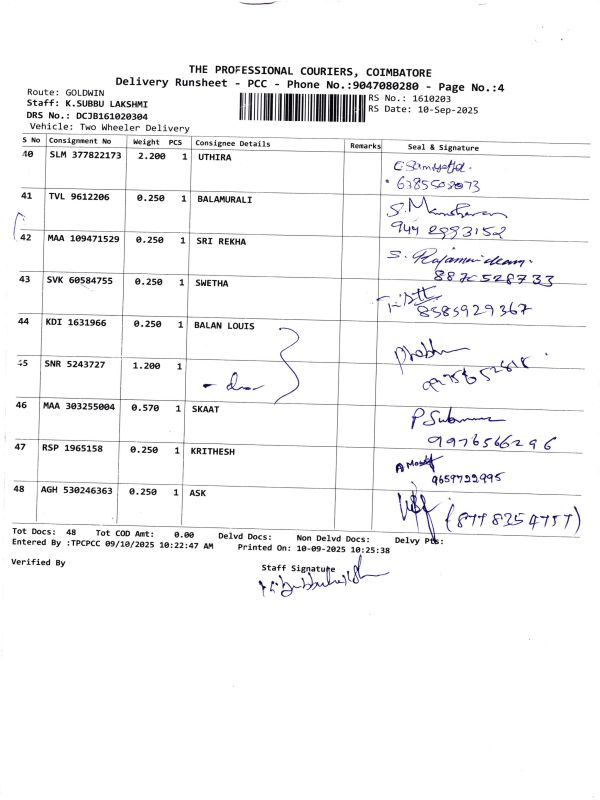 THE PROFESSIONAL COURIERS, COIMBATORE
Delivery Runsheet - PCC - Phone No.:9047080280 - Page No.:4
Route: GOLDWIN
RS No.: 1610203
Staff: K.SUBBU LAKSHMI
RS Date: 10-Sep-2025
DRS No.: DCJB161020304
Vehicle: Two Wheeler Delivery
S No Consignment No Weight PCS Consignee Details Remarks Seal & Signature
40 SLM 377822173 2.200 1 UTHIRA
41 TVL 9612206 0.250 1 BALAMURALI
S.
42 MAA 109471529 0.250 1 SRI REKHA
S.
43 SVK 60584755 0.250 1 SWETHA
8585929367
44 KDI 1631966 0.250 1 BALAN LOUIS
Prabhu
45 SNR 5243727 1.200 1
46 MAA 303255004 0.570 1 SKAAT
9976566296
47 RSP 1965158 0.250 1 KRITHESH
9659722995
48 AGH 530246363 0.250 1 ASK
Tot Docs: 48 Tot COD Amt: 0.00 Delvd Docs: Non Delvd Docs: Delvy Pts:
Entered By :TPCPCC 09/10/2025 10:22:47 AM Printed On: 10-09-2025 10:25:38
Verified By
Staff Signature